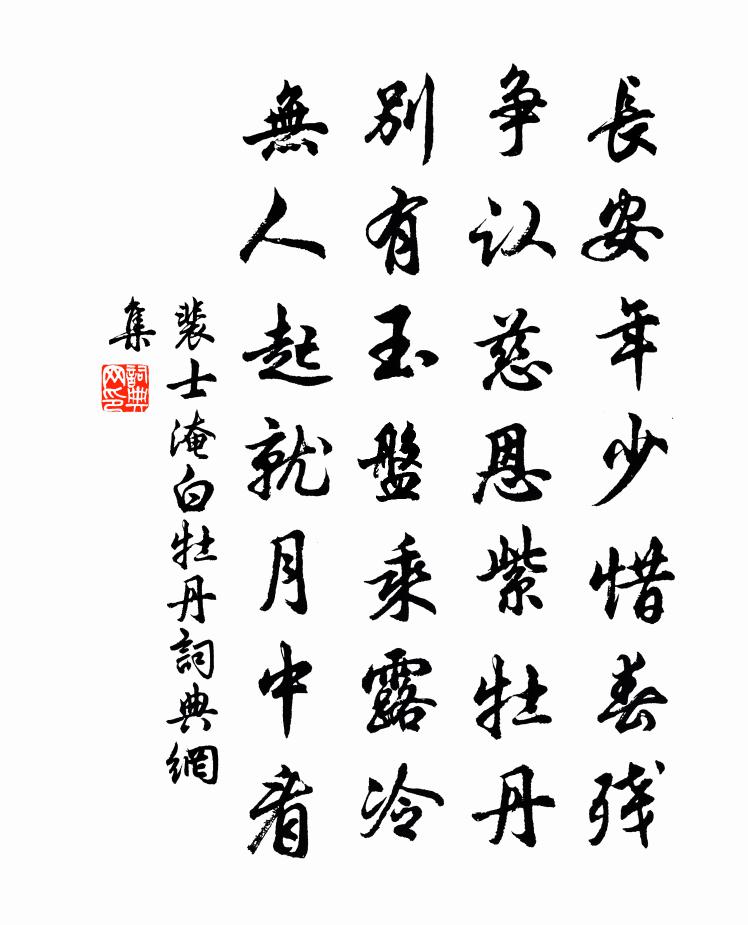 長安年少惜春残
争认慈恩紫牡丹
别有玉盤乘露冷
無人起就月中看
裴士淹白牡丹詞典網
集
詞典
网印